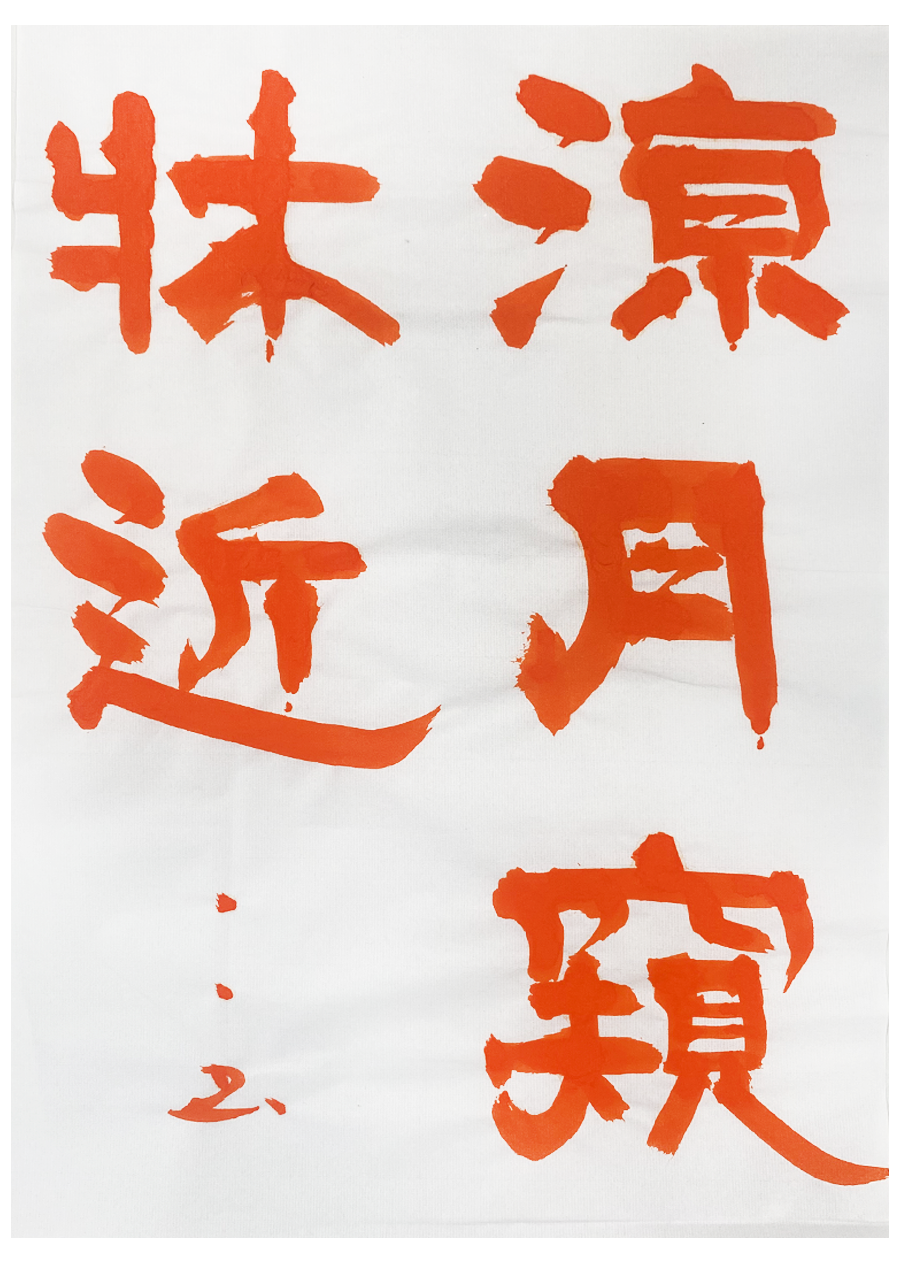 涼月窺
牀近